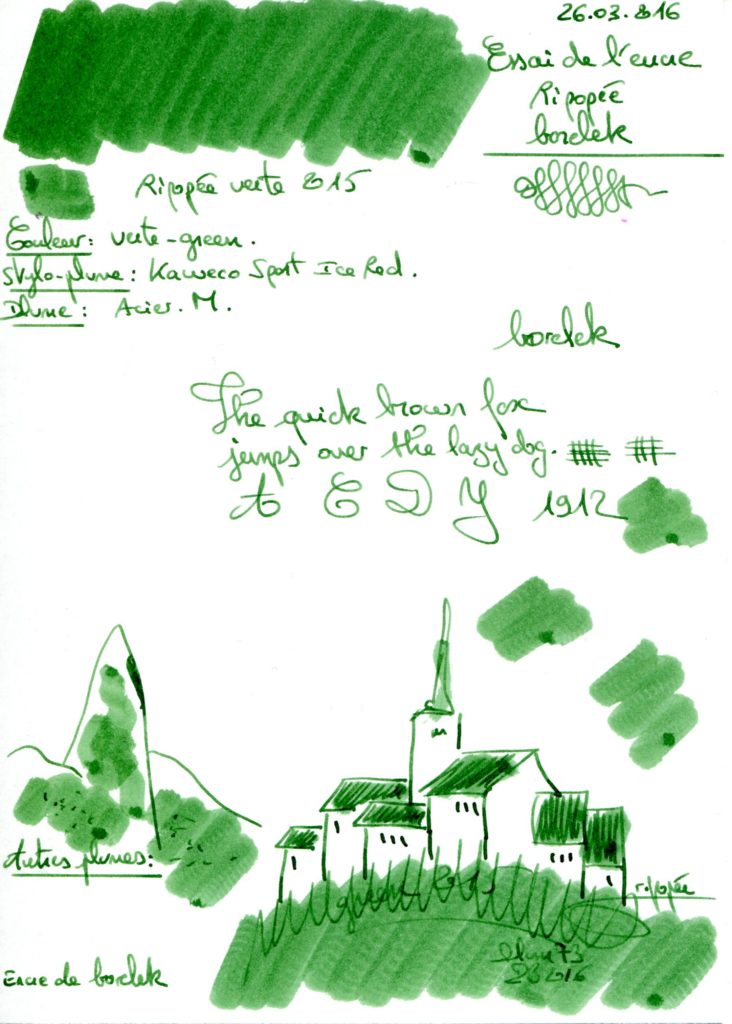 26.03.2016
Essai de l'encre
Ripopée
bordek
Ripopée verte 2015
Couleur: verte-green.
Stylo-plume: Kaweco Sport Ice Red.
Plume: Acier. M.
bordek
The quick brown fox
jumps over the lazy dog.
A E D Y 1912
Autres plumes:
ripopée
2016
Encre de bordek